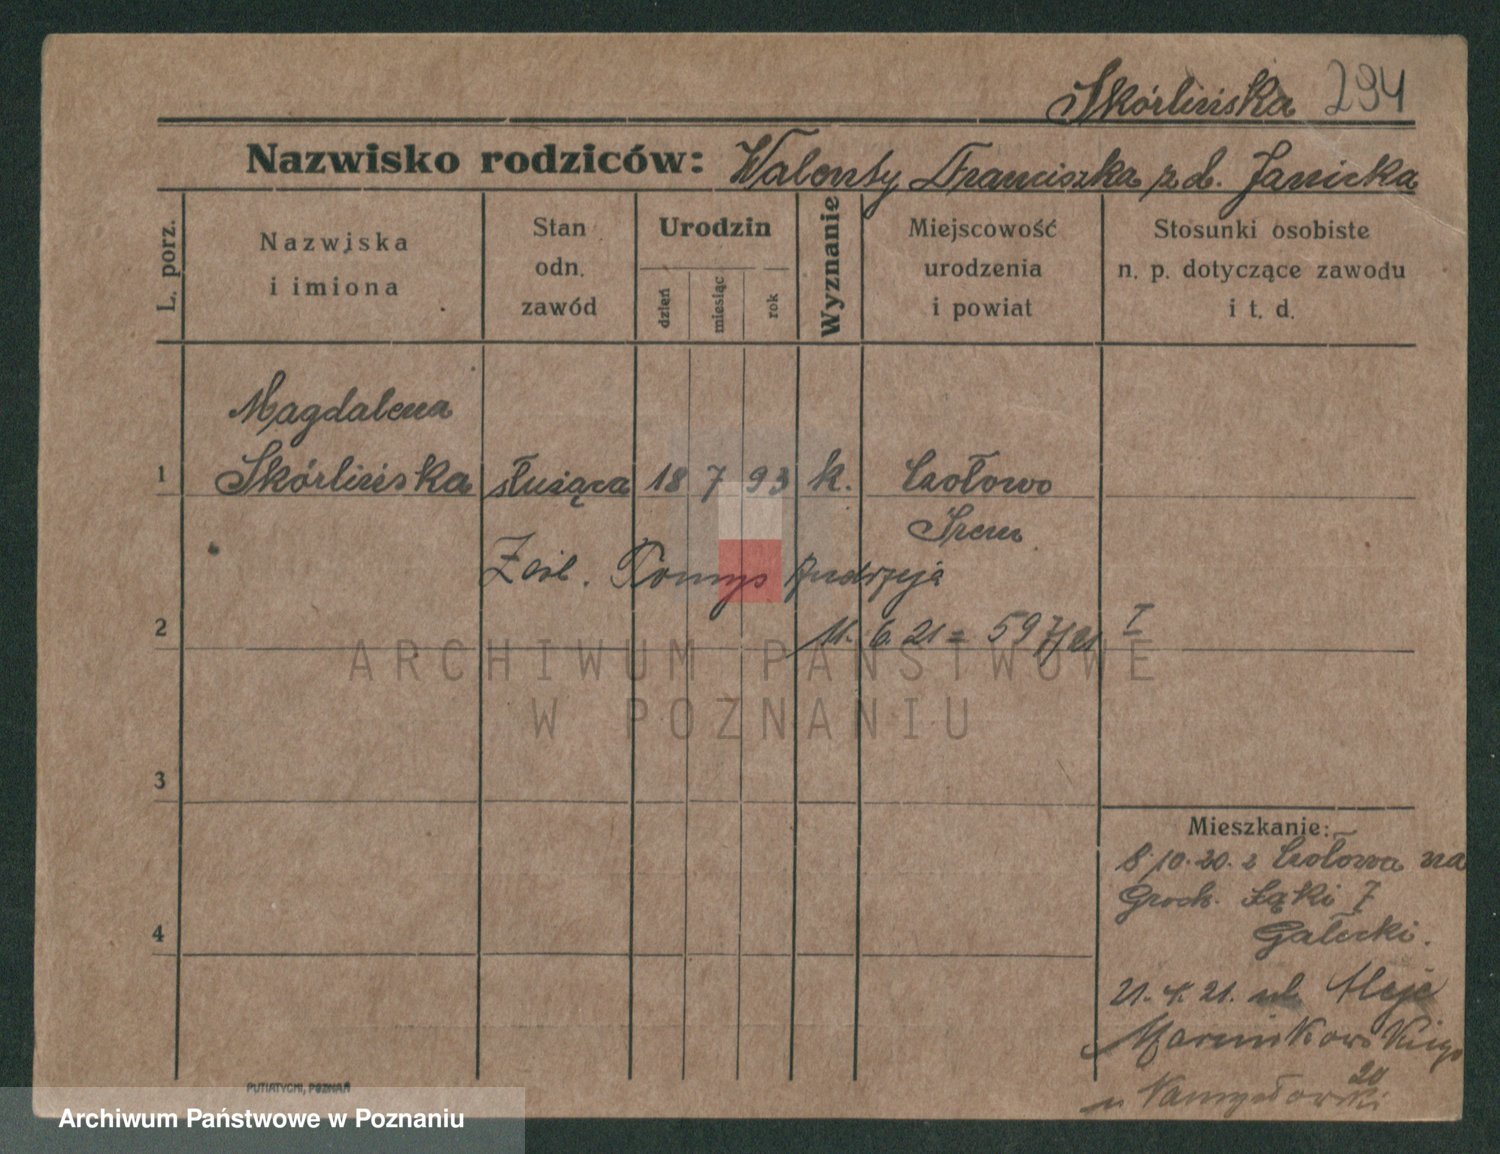 Skórlińska 294
Nazwisko rodziców: Walenty Franciszka z d. Janicka
L. porz.
Nazwiska
i imiona
Stan
odn.
zawód
Urodzin
dzień
miesiąc
rok
Wyznanie
Miejscowość
urodzenia
i powiat
Stosunki osobiste
n. p. dotyczące zawodu
i t. d.
Magdalena
1 Skórlińska służąca 18 7 93 k. Czołowo
Śrem
Zaśl. Tomys Andrzeja
2 11. 6. 21 = 597/21 I
ARCHIWUM PAŃSTWOWE
W POZNANIU
3
Mieszkanie:
8.10.20. z Czołowa na
Groch. Łąki 7
4 Gałecki.
21. 4. 21. ul. Aleje
Marcinkowskiego
20
u Namysłowski
PUTIATYCKI, POZNAŃ
Archiwum Państwowe w Poznaniu